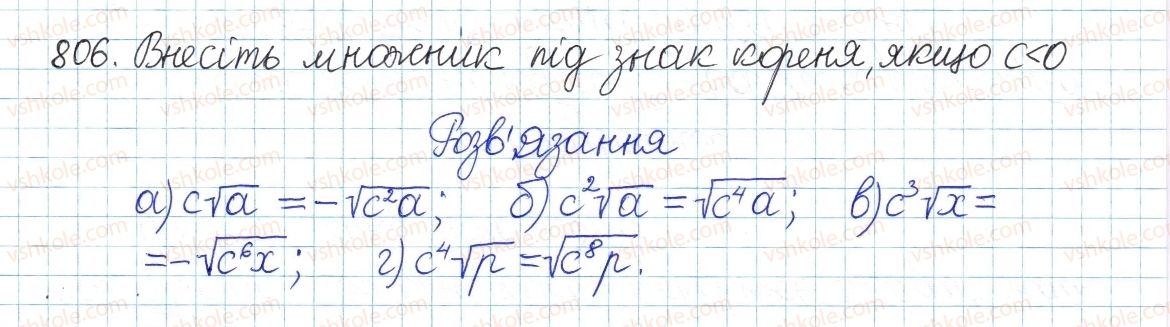 806. Внесіть множник під знак кореня, якщо c<0
Розв'язання
а) c√a = -√c²a; б) c²√a = √c⁴a; в) c³√x =
= -√c⁶x; г) c⁴√p = √c⁸p.